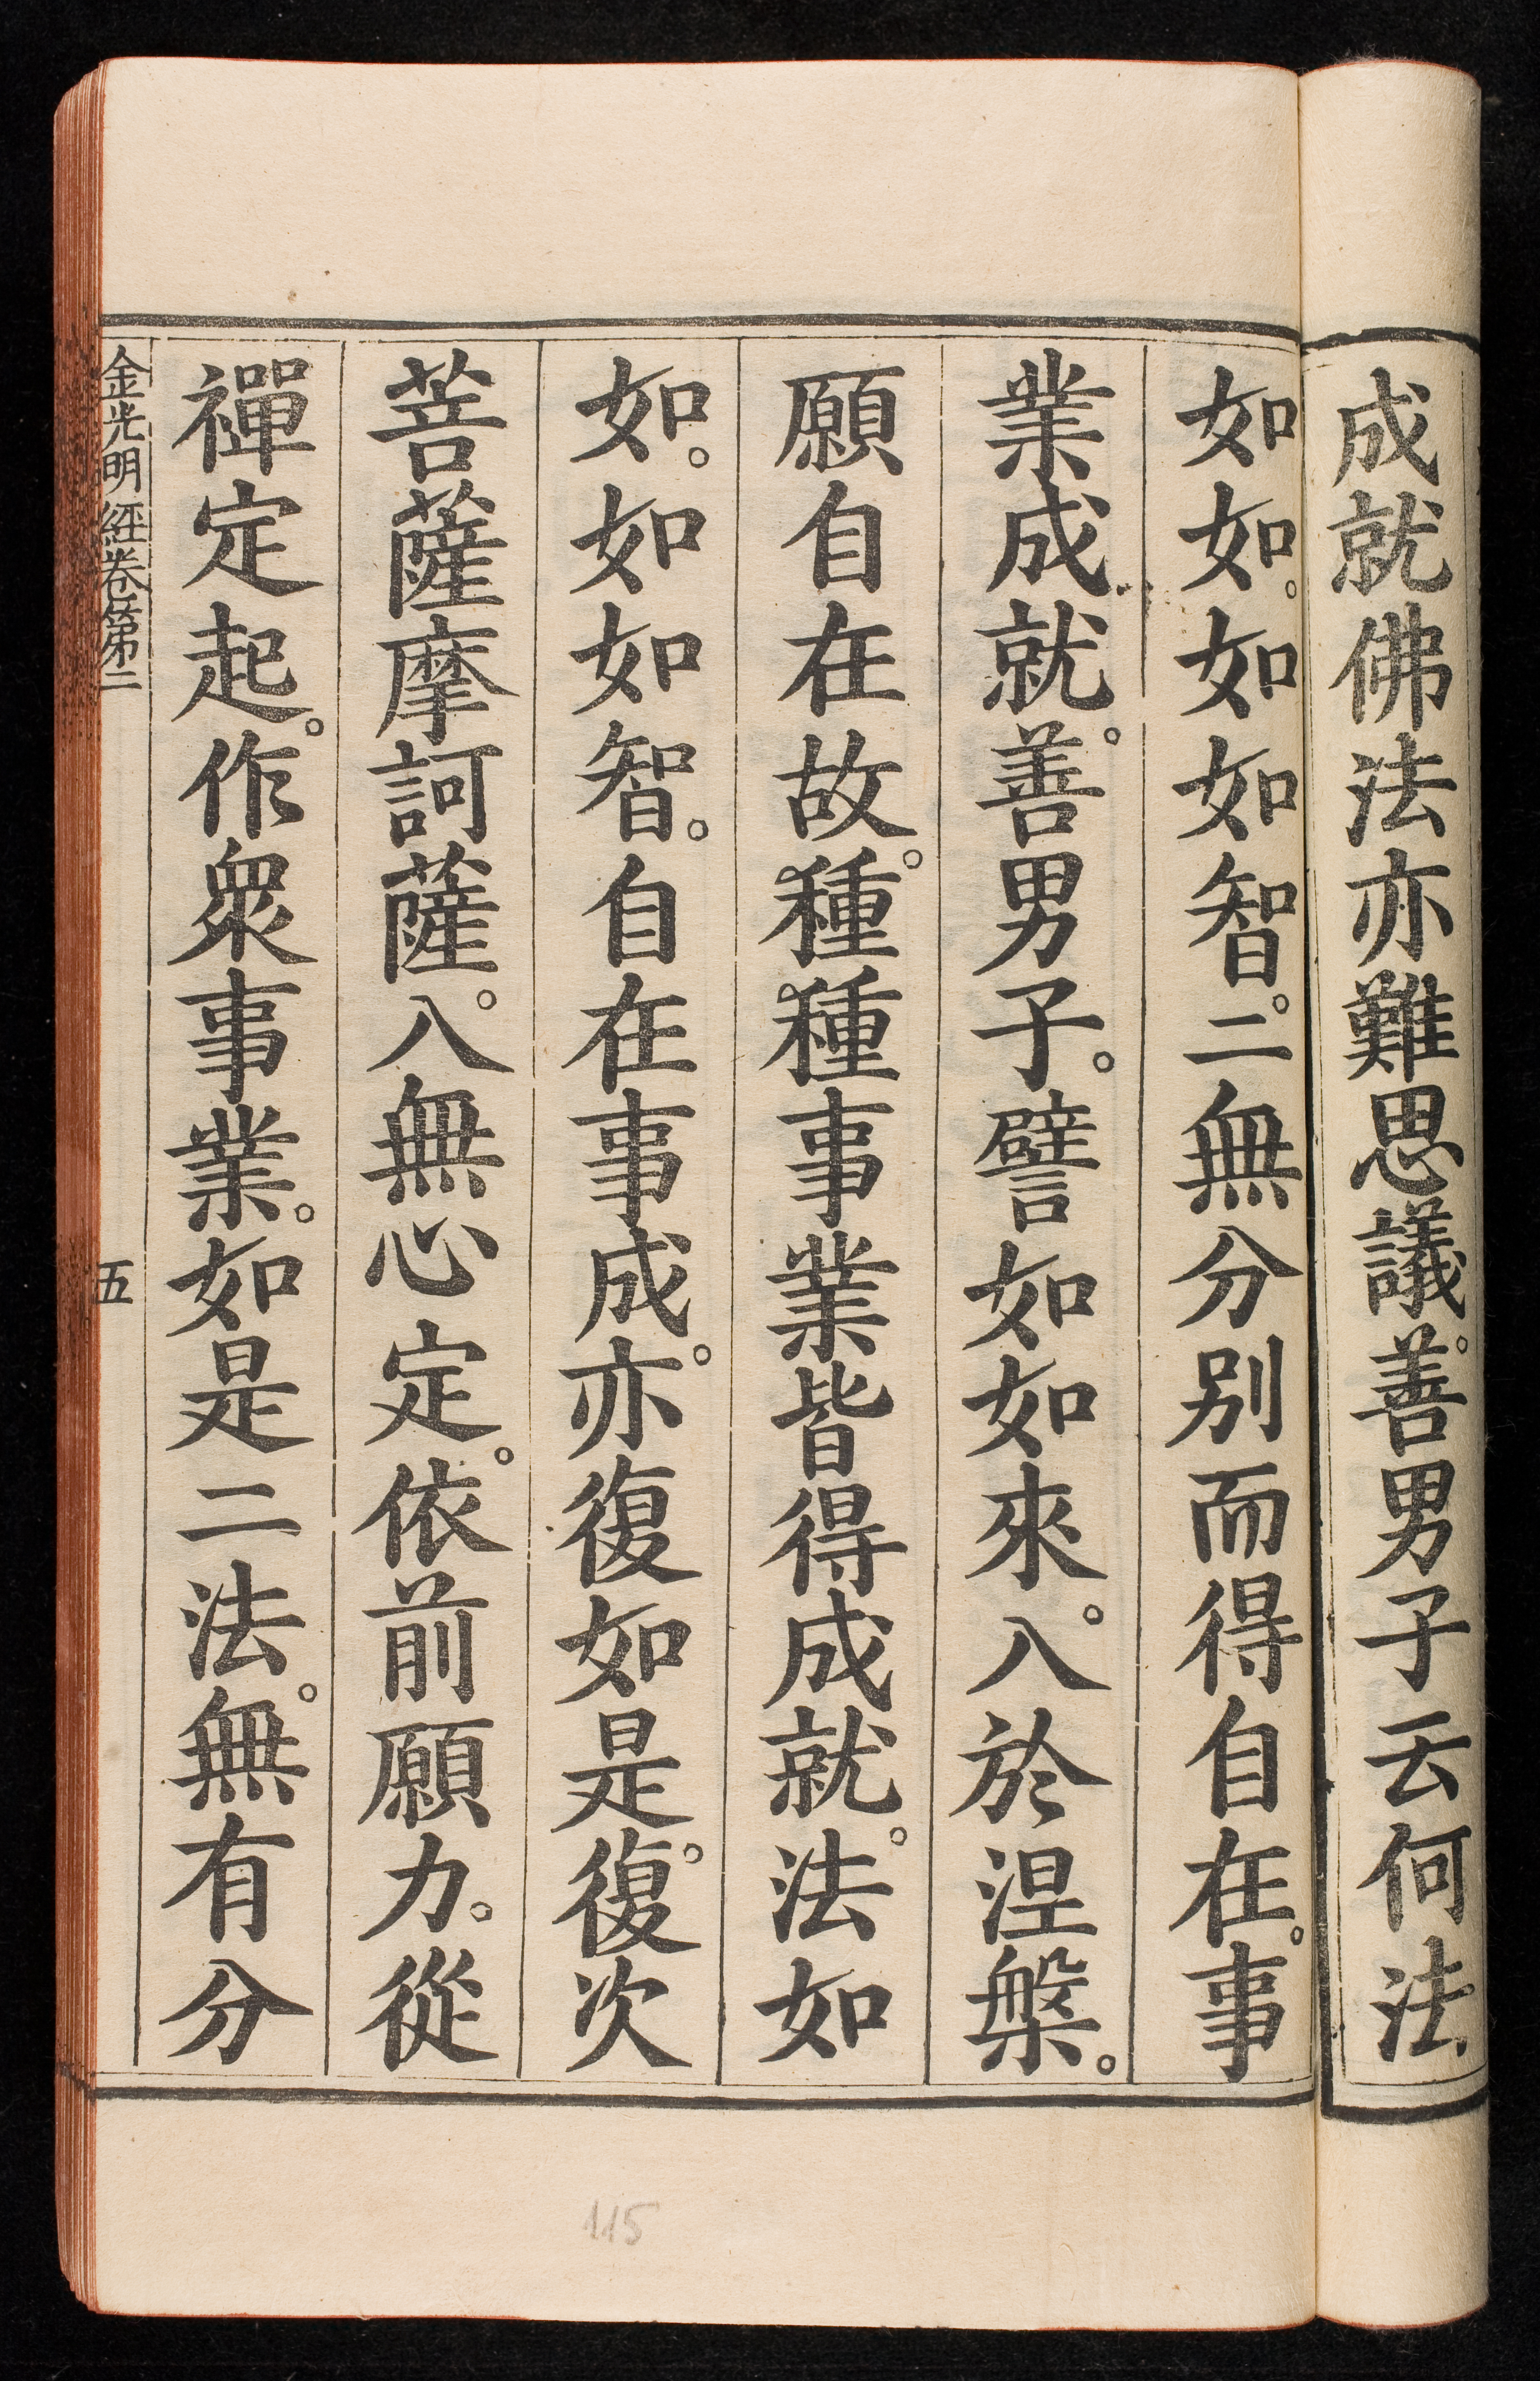 成就佛法亦難思議。善男子云何法
如如。如如智。二無分别而得自在。事
業成就。善男子。譬如如來。入於涅槃。
願自在故。種種事業皆得成就。法如
如。如如智。自在事成。亦復如是。復次
菩薩摩訶薩。入無心定。依前願力。從
禪定起。作衆事業。如是二法。無有分
金光明經卷第二 五
115